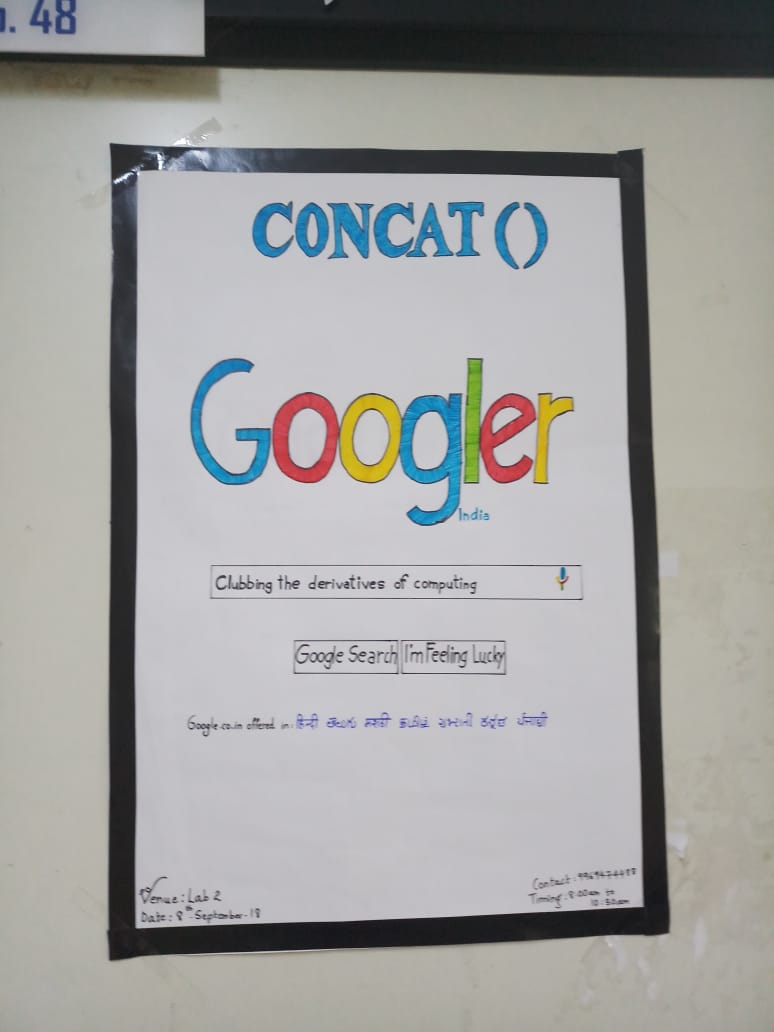 . 48
CONCAT ()
Googler
India
Clubbing the derivatives of computing
Google Search I'm Feeling Lucky
Google.co.in offered in: हिन्दी తెలుగు मराठी தமிழ் ગુજરાતી ಕನ್ನಡ ਪੰਜਾਬੀ
Venue: Lab 2
Date: 8th-September-18
Contact:
Timing: 8:00am to
10:30am